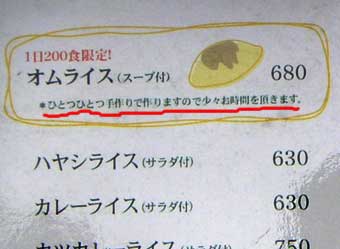 1日200食限定!
オムライス(スープ付) 680
*ひとつひとつ手作りで作りますので少々お時間を頂きます。
ハヤシライス(サラダ付) 630
カレーライス(サラダ付) 630
カツカレーライス(サラダ付) 750